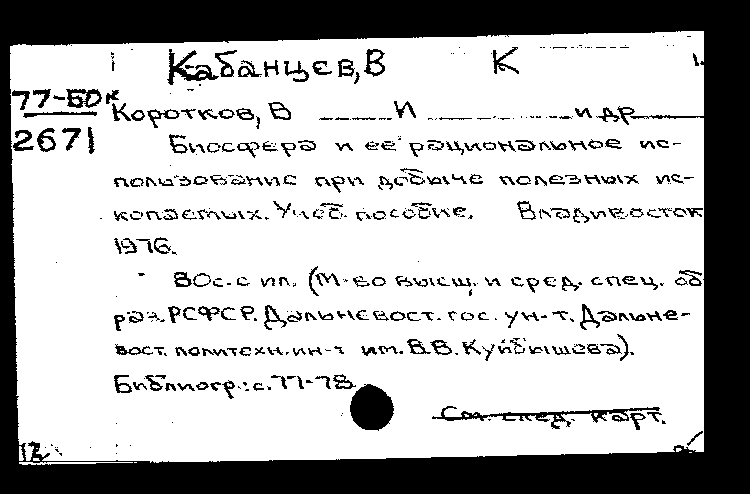 Кабанцев, В К 1.
77-БОК
Коротков, В И и др
2671
Биосфера и ее рациональное ис-
пользование при добыче полезных ис-
копаемых. Учеб. пособие. Владивосток
1976.
80с. с ил. (М-во высш. и сред. спец. об
раз. РСФСР. Дальневост. гос. ун-т. Дальне-
вост. политехн. ин-т им. В.В. Куйбышева).
Библиогр.: с. 77-78.
См. след. карт.